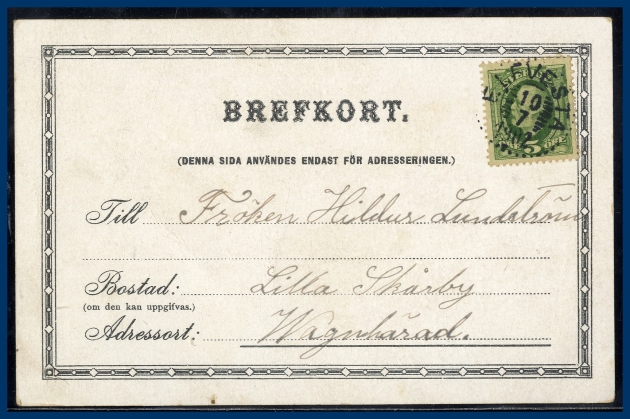 BREFKORT.
(DENNA SIDA ANVÄNDES ENDAST FÖR ADRESSERINGEN.)
Till Fröken Hildur Lundström
Bostad: Lilla Skårby
(om den kan uppgifvas.)
Adressort: Wagnhärad.
10
7
5 ÖRE